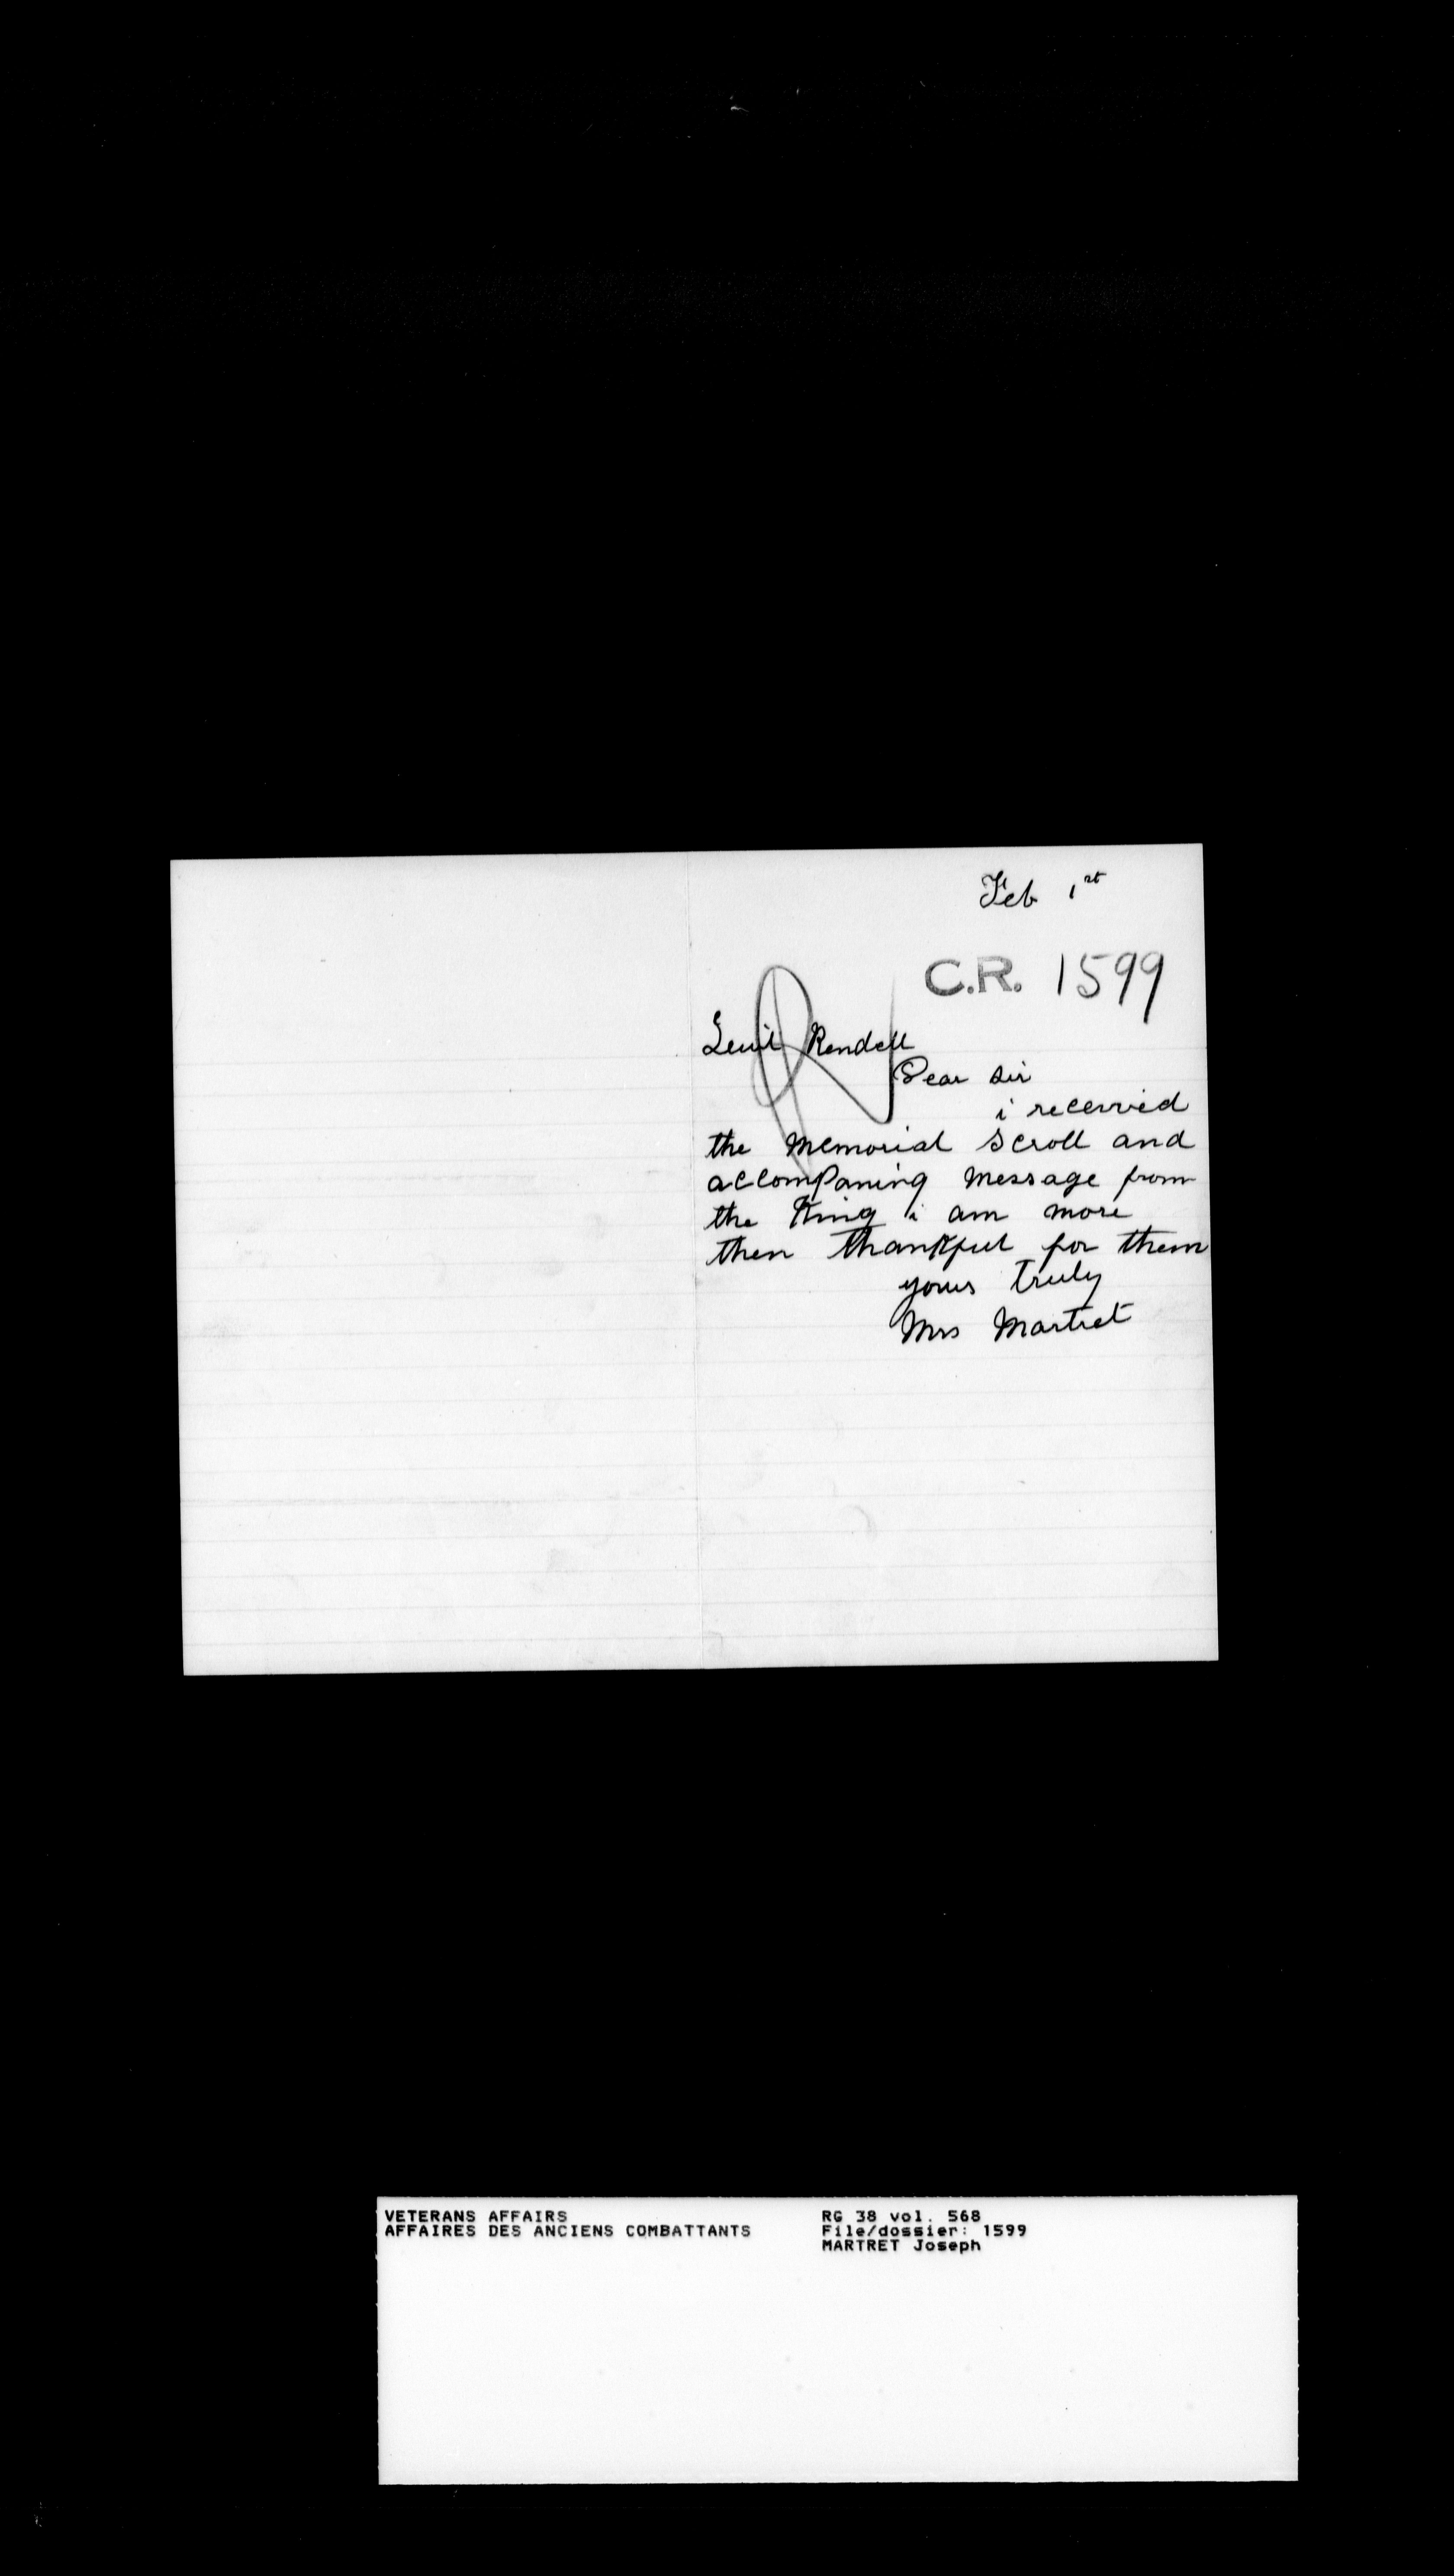 Feb 1st
C.R. 1599
Leuit Rendell
Dear sir
i received
the memorial scroll and
accompaning message from
the King i am more
then thankful for them
yours truly
Mrs Martret
VETERANS AFFAIRS RG 38 vol. 568
AFFAIRES DES ANCIENS COMBATTANTS File/dossier: 1599
MARTRET Joseph